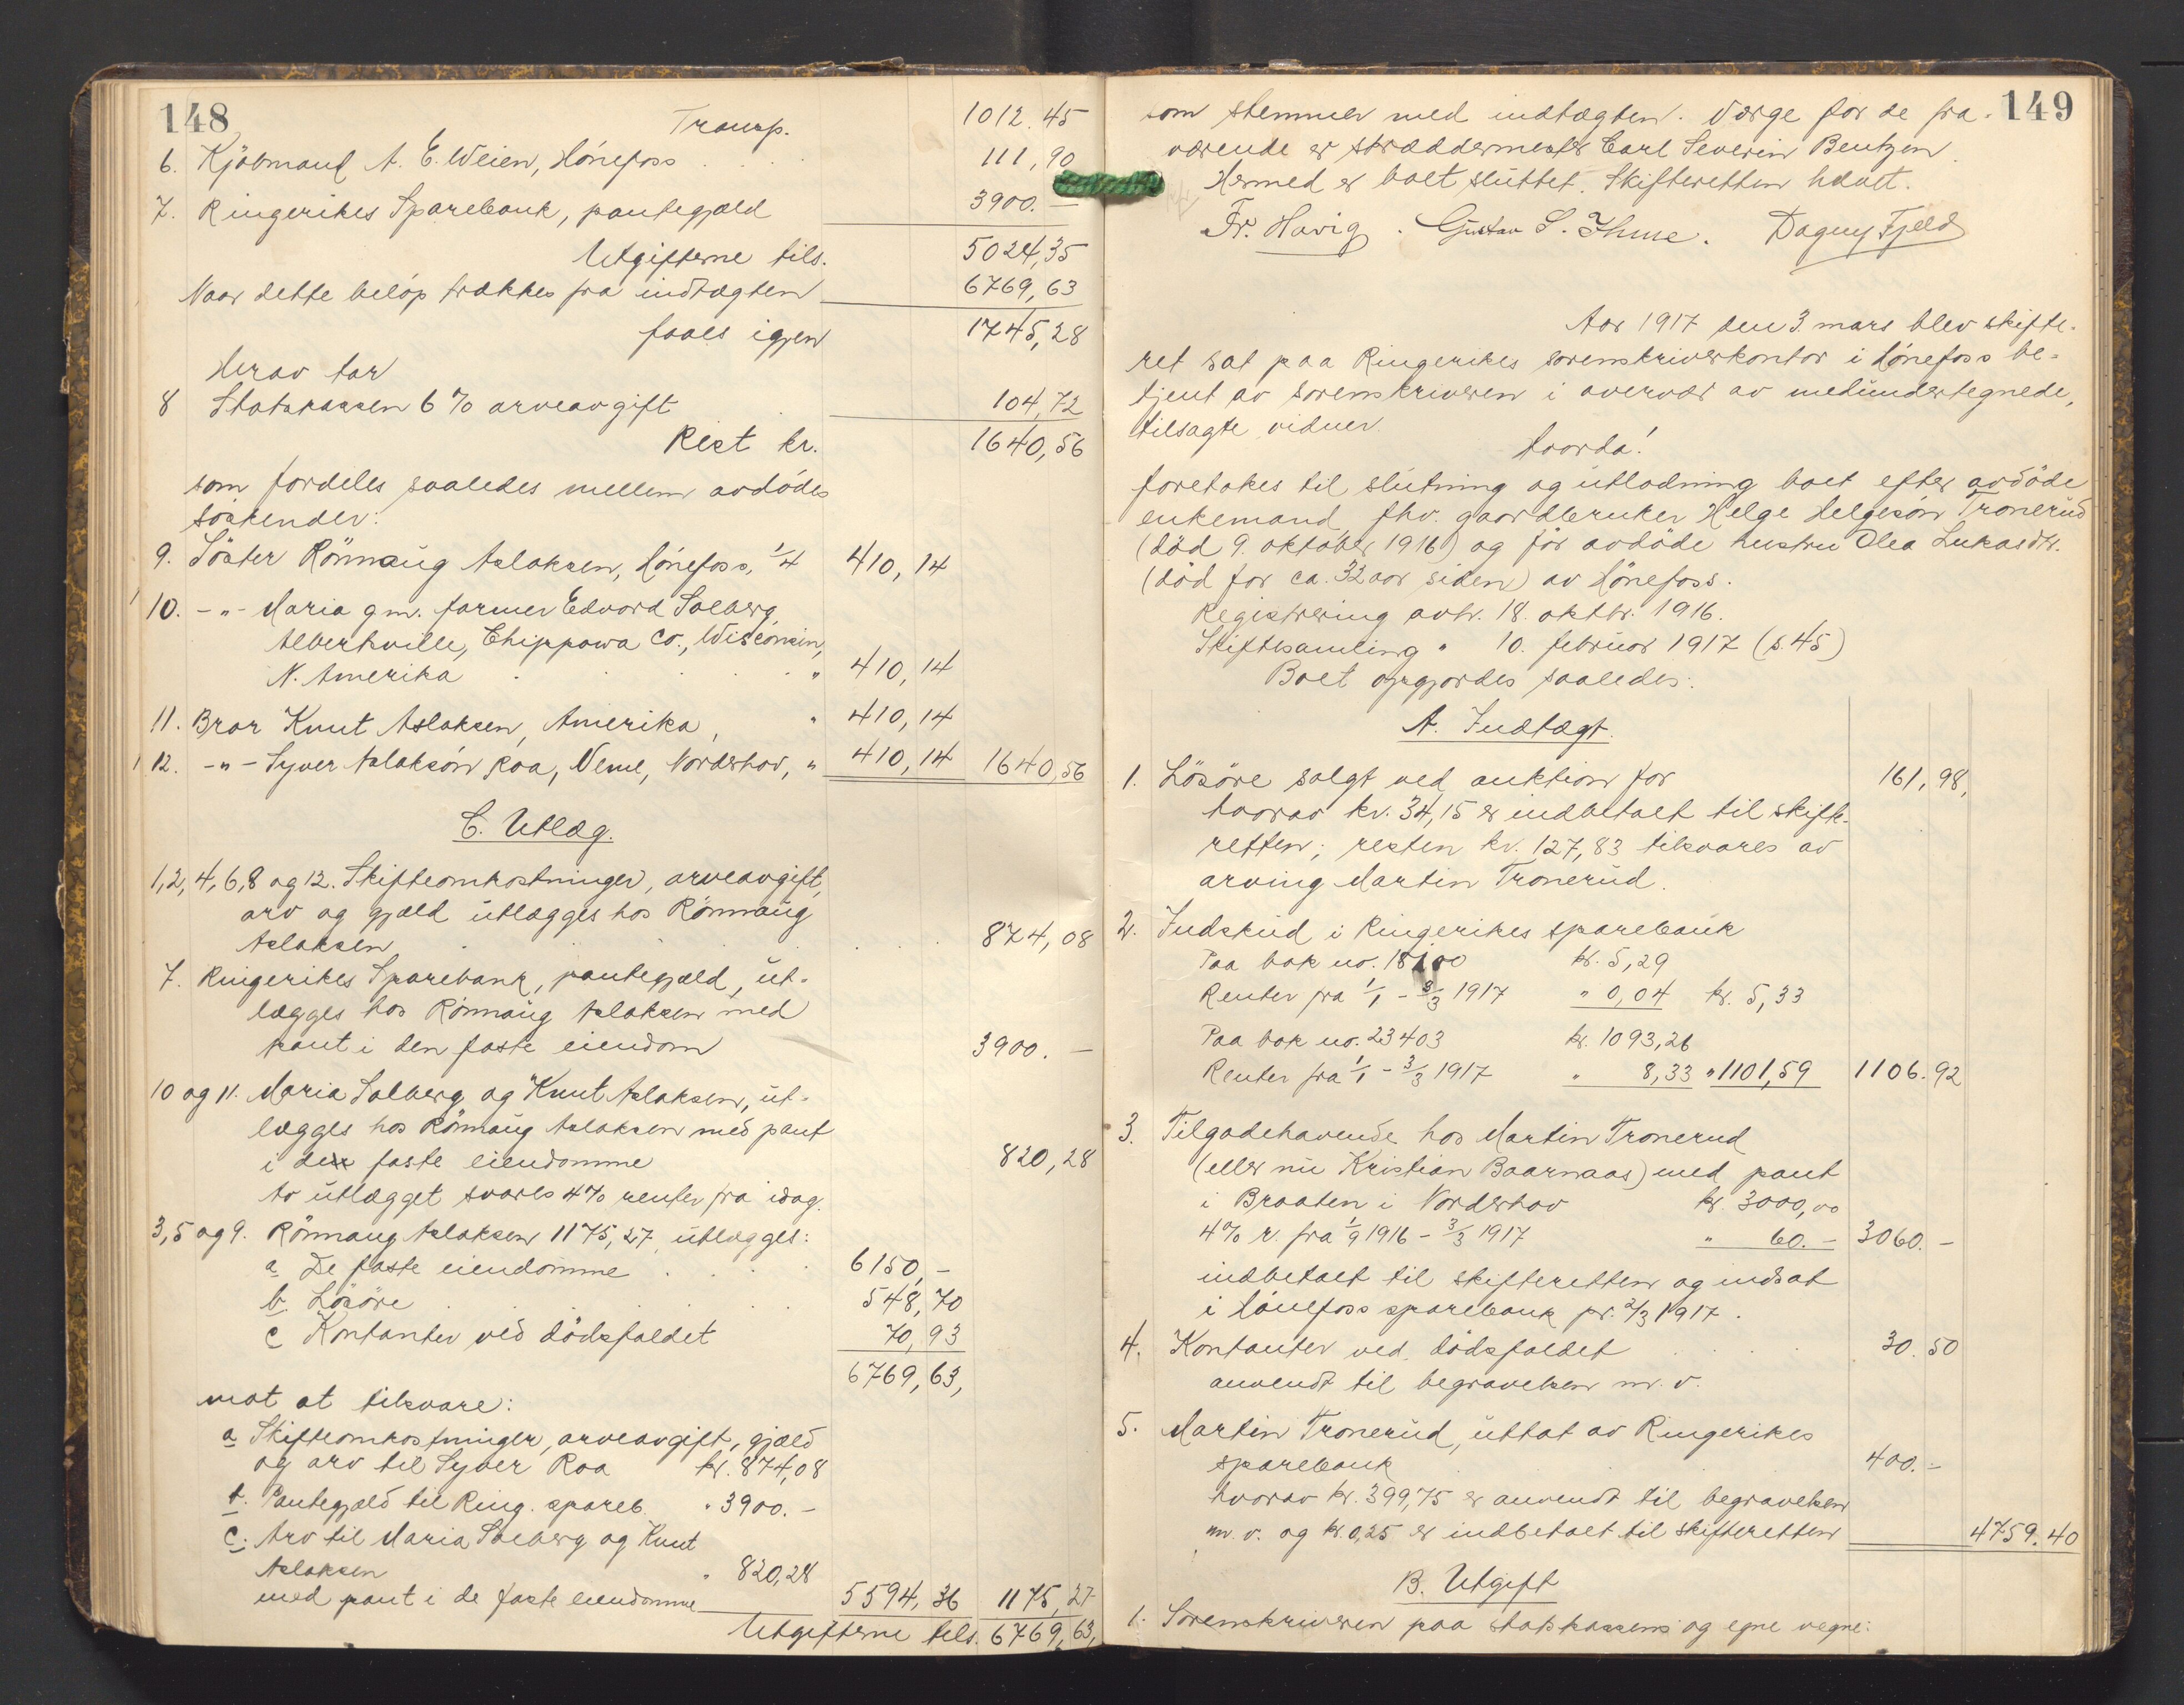 148
Transp. 1012.45
6. Kjöbmand A. E. Weien, Hönefoss . . . 111,90
7. Ringerikes Sparebank, pantegjæld 3900.—
Utgifterne tils. 5024,35
Naar dette belöp trækkes fra indtægten 6769,63
faaes igjen 1745,28
Herav tar
8 Statskassen 6% arveavgift . 104,72
Rest kr. 1640,56
som fordeles saaledes mellem avdödes
söskender:
9. Söster Rönnaug Aslaksen, Hönefoss, 1/4 410,14
10. -"- Maria gm. farmer Edvard Solberg,
Albertville, Chippowa Co., Wisconsin,
N. Amerika . . . . " 410,14
11. Bror Knut Aslaksen, Amerika, " 410,14
12. -"- Syver Aslaksön Roa, Veme, Norderhov, " 410,14 1640,56
C. Utlæg.
1,2,4,6,8 og 12. Skifteomkostninger, arveavgift,
arv og gjæld utlægges hos Rönnaug
Aslaksen . . . . 874,08
7. Ringerikes Sparebank, pantegjæld, ut-
lægges hos Rönnaug Aslaksen med
pant i den faste eiendom 3900.—
10 og 11. Maria Solberg og Knut Aslaksen, ut-
lægges hos Rönnaug Aslaksen med pant
i de faste eiendomme 820,28
Av utlægget svares 4% renter fra idag.
3,5 og 9. Rönnaug Aslaksen 1175,27 utlægges:
a De faste eiendomme . . . 6150,—
b. Lösöre . . . . 548,70
c Kontanter ved dödsfaldet 70,93
6769,63,
mot at tilsvare:
a Skifteomkostninger, arveavgift, gjæld
og arv til Syver Roa kr. 874,08
b. Pantegjæld til Ring. spareb. " 3900.-
c. Arv til Maria Solberg og Knut
Aslaksen " 820,28
med pant i de faste eiendomme 5594,36 1175,27
Utgifterne tils. 6769,63,
149
som stemmer med indtægten. Værge for de fra-
værende er skræddermester Carl Severin Bentzen.
Hermed er boet sluttet. Skifteretten hævet.
Fr. Havig . Gustav S. Ihme. Dagny Fjeld
Aar 1917 den 3. mars blev skifte-
ret sat paa Ringerikes sorenskriverkontor i Hönefoss be-
tjent av sorenskriveren i overvær av medundertegnede,
tilsagte vidner.
Hvorda!
foretokes til slutning og utlodning boet efter avdöde
enkemand, fhv. gaardbruker Helge Helgesön Tronerud
(död 9. oktober 1916) og för avdöde hustru Olea Lukasdtr.
(död for ca. 32 aar siden) av Hönefoss.
Registrering avh. 18. oktbr. 1916.
Skiftesamling " 10. februar 1917 (s. 45)
Boet opgjordes saaledes:
A. Indtægt.
1. Lösöre solgt ved auktion for 161,98,
hvorav kr. 34,15 er indbetalt til skifte-
retten; resten kr. 127,83 tilsvares av
arving Martin Tronerud.
2. Indskud i Ringerikes sparebank
Paa bok no. 18100 kr. 5,29
Renter fra 1/1 - 3/3 1917 " 0,04 kr. 5,33
Paa bok no. 23403 kr. 1093,26
Renter fra 1/1 - 3/3 1917 " 8,33 " 1101,59 1106.92
3. Tilgodehavende hos Martin Tronerud
(eller nu Kristian Baarnaas) med pant
i Braaten i Norderhov kr. 3000,00
4% r. fra 1/9 1916 - 3/3 1917 " 60.- 3060.-
indbetalt til skifteretten og indsat
i Hönefoss sparebank pr. 2/3 1917.
4. Kontanter ved dödsfaldet . . . . 30.50
anvendt til begravelsen m. v.
5. Martin Tronerud, uttat av Ringerikes
sparebank . . . . 400.-
hvorav kr. 399,75 er anvendt til begravelsen
m. v. og kr. 0,25 er indbetalt til skifteretten 4759.40
B. Utgift
1. Sorenskriveren paa statskassens og egne vegne: